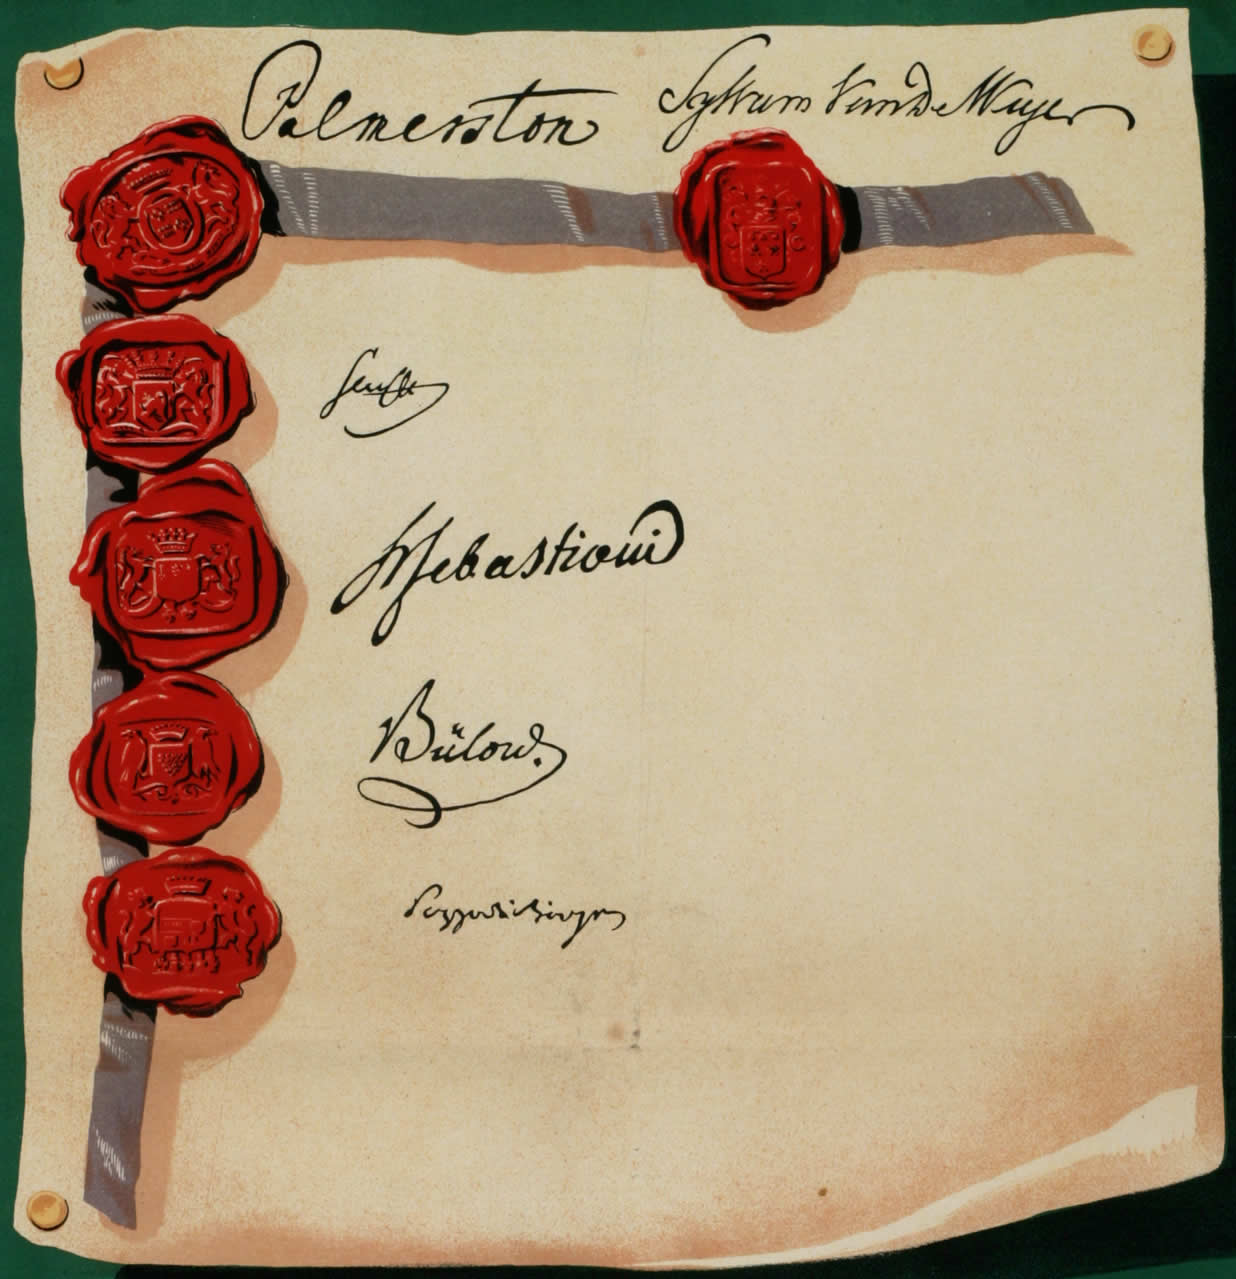 Palmerston Sylvain Van de Weyer
Senfft
H Sebastiani
Bülow.
Pozzo di Borgo